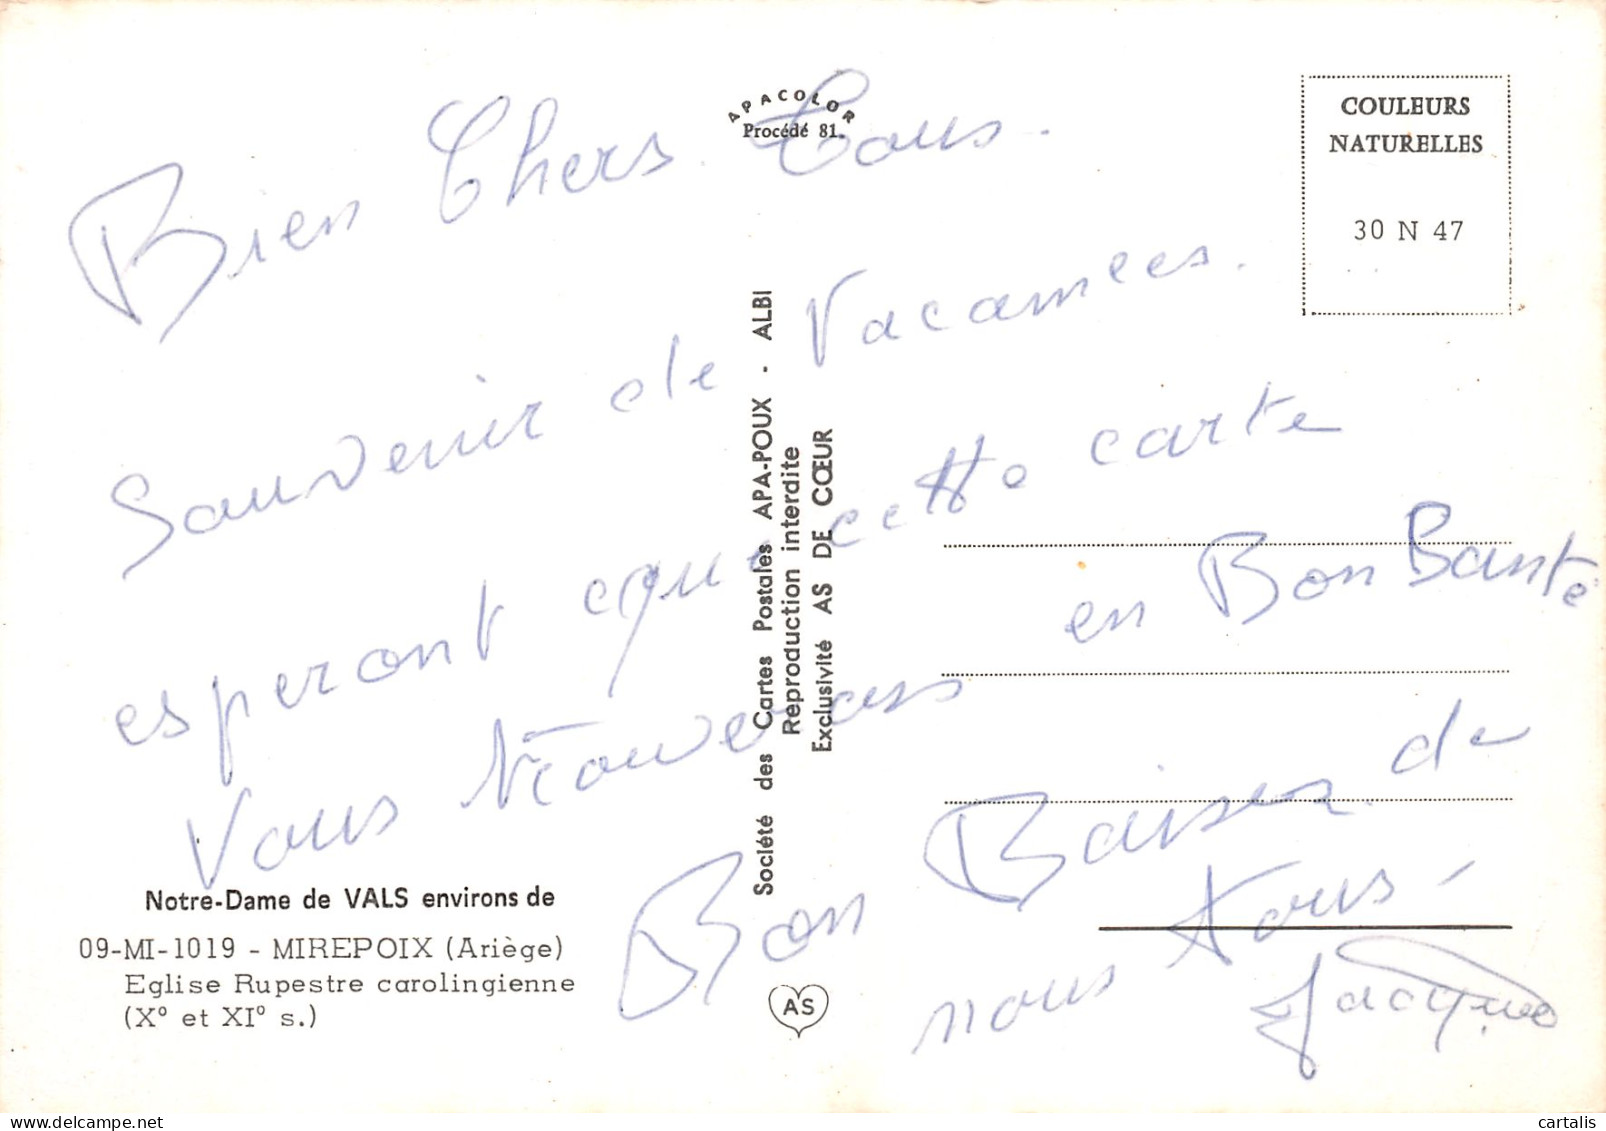 APACOLOR
Procédé 81.
COULEURS
NATURELLES
30 N 47
Bien Chers Tous.
Souvenir de Vacamces.
esperont que cette carte
Vous trouveras en Bon Santé
Bon Baiser de
nous tous.
Jacques
Société des Cartes Postales APA-POUX - ALBI
Reproduction interdite
Exclusivité AS DE CŒUR
Notre-Dame de VALS environs de
09-MI-1019 - MIREPOIX (Ariège)
Eglise Rupestre carolingienne
(X° et XI° s.)
AS
cartalis